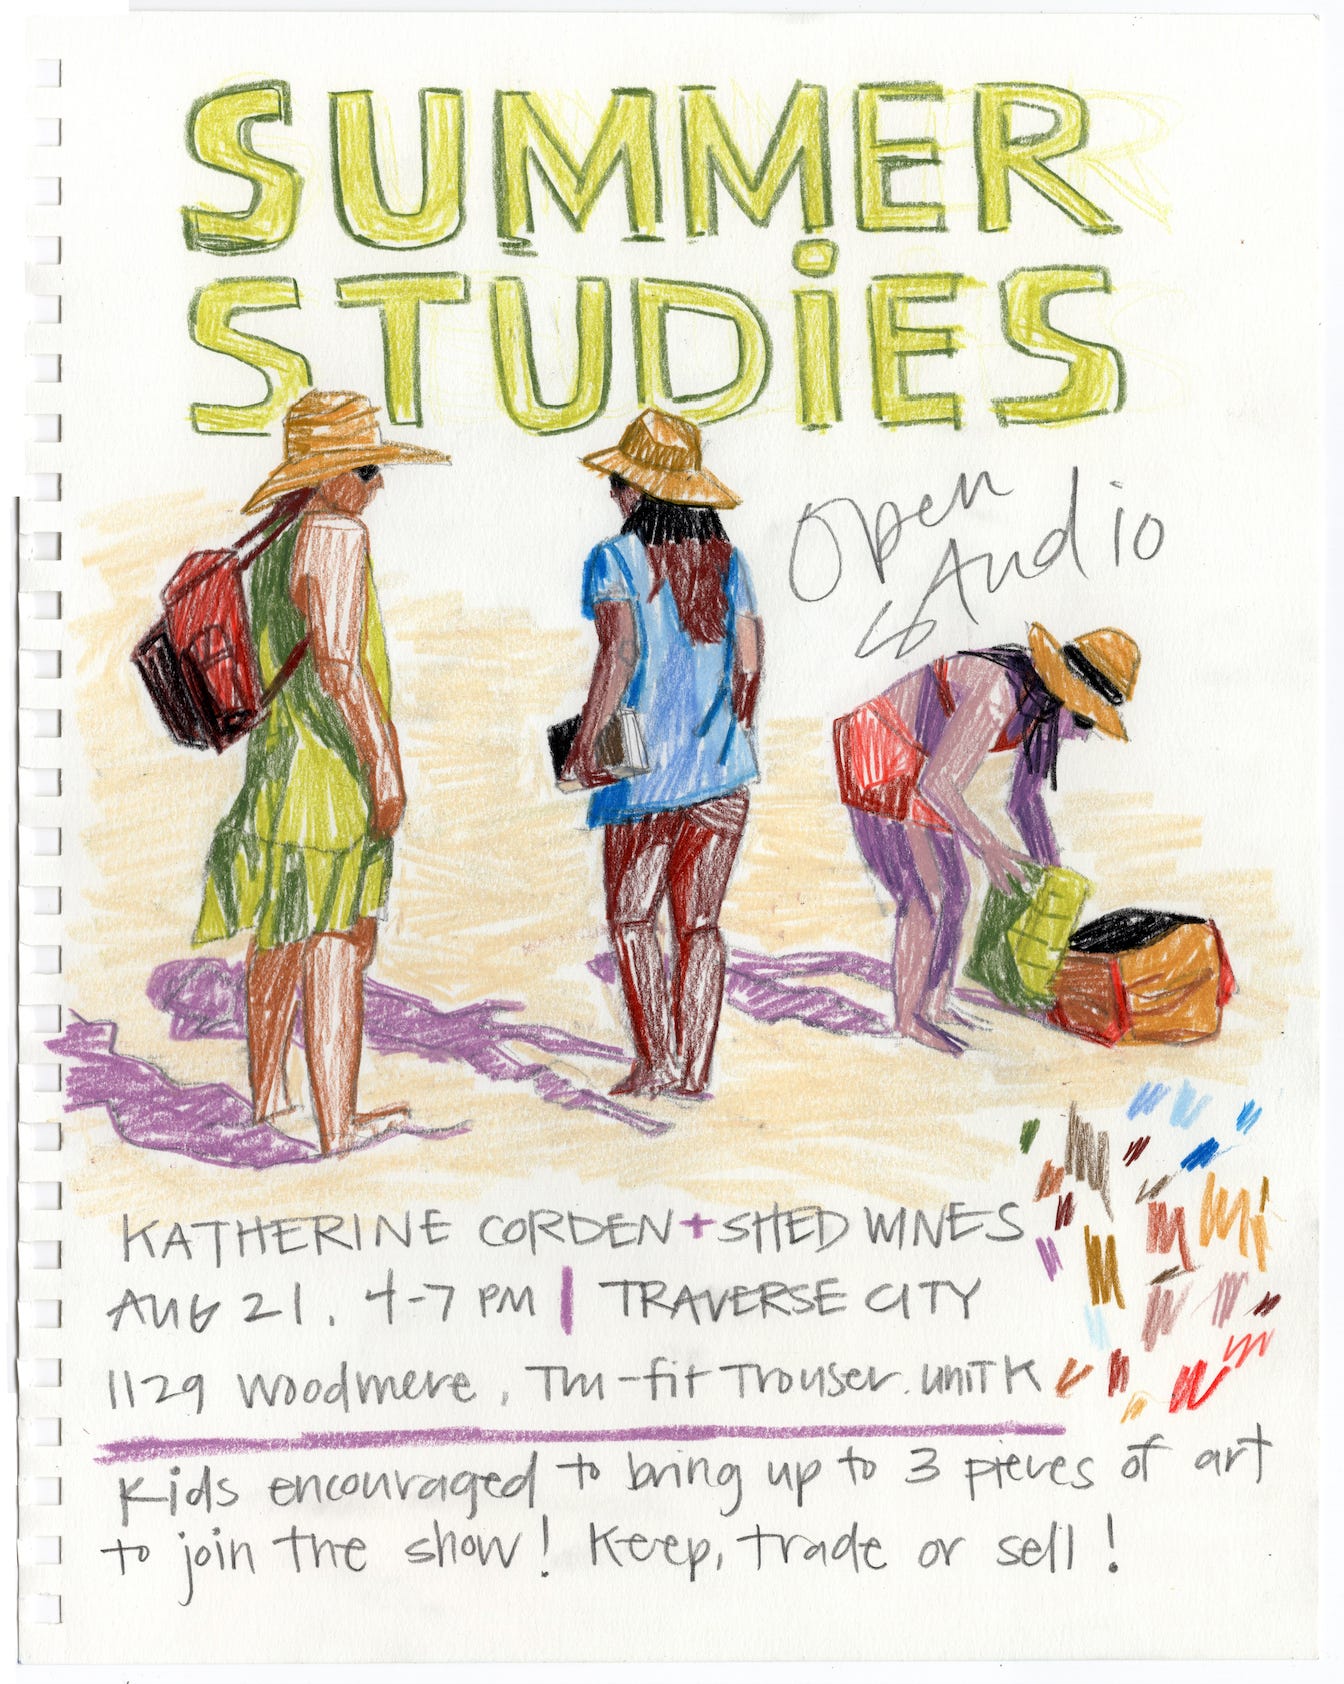 SUMMER
STUDiES
Open
Studio
KATHERINE CORDEN + SHED WINES
AUG 21, 4-7 PM | TRAVERSE CITY
1129 Woodmere, Tru-fit Trouser. UNIT K
Kids encouraged to bring up to 3 pieces of art
to join the show! Keep, trade or sell!